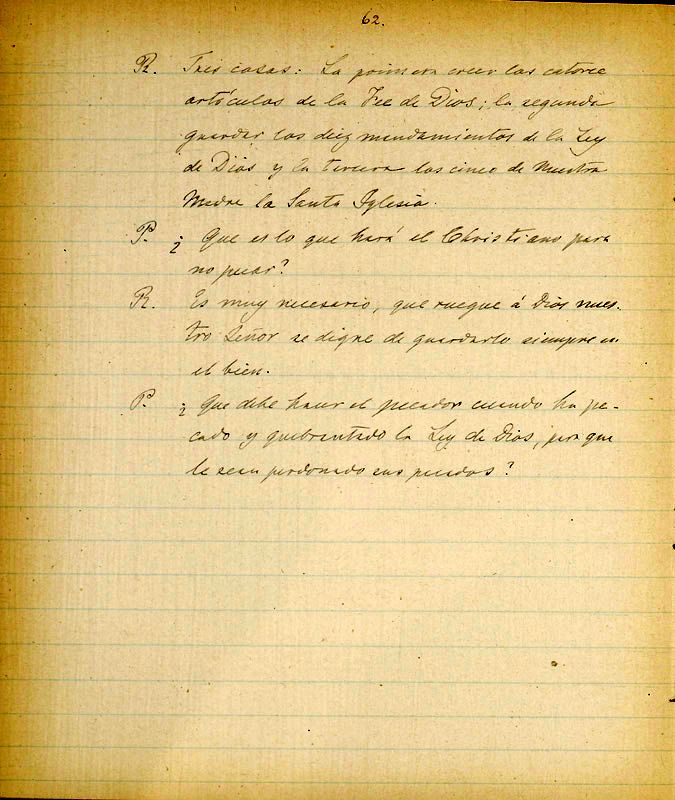 62.
R. Tres cosas: La primera creer los catorce
artículos de la Fee de Dios; la segunda
guardar los diez mandamientos de la Ley
de Dios y la tercera los cinco de Nuestra
Madre la Santa Iglesia.
P. ¿ Que es lo que hará el Christiano para
no pecar?
R. Es muy necesario, que ruegue á Dios nues-
tro Señor se digne de guardarlo siempre en
el bien.
P. ¿ Que debe hacer el pecador cuando ha pe-
cado y quebrantado la Ley de Dios, para que
le sean perdonado sus pecados?